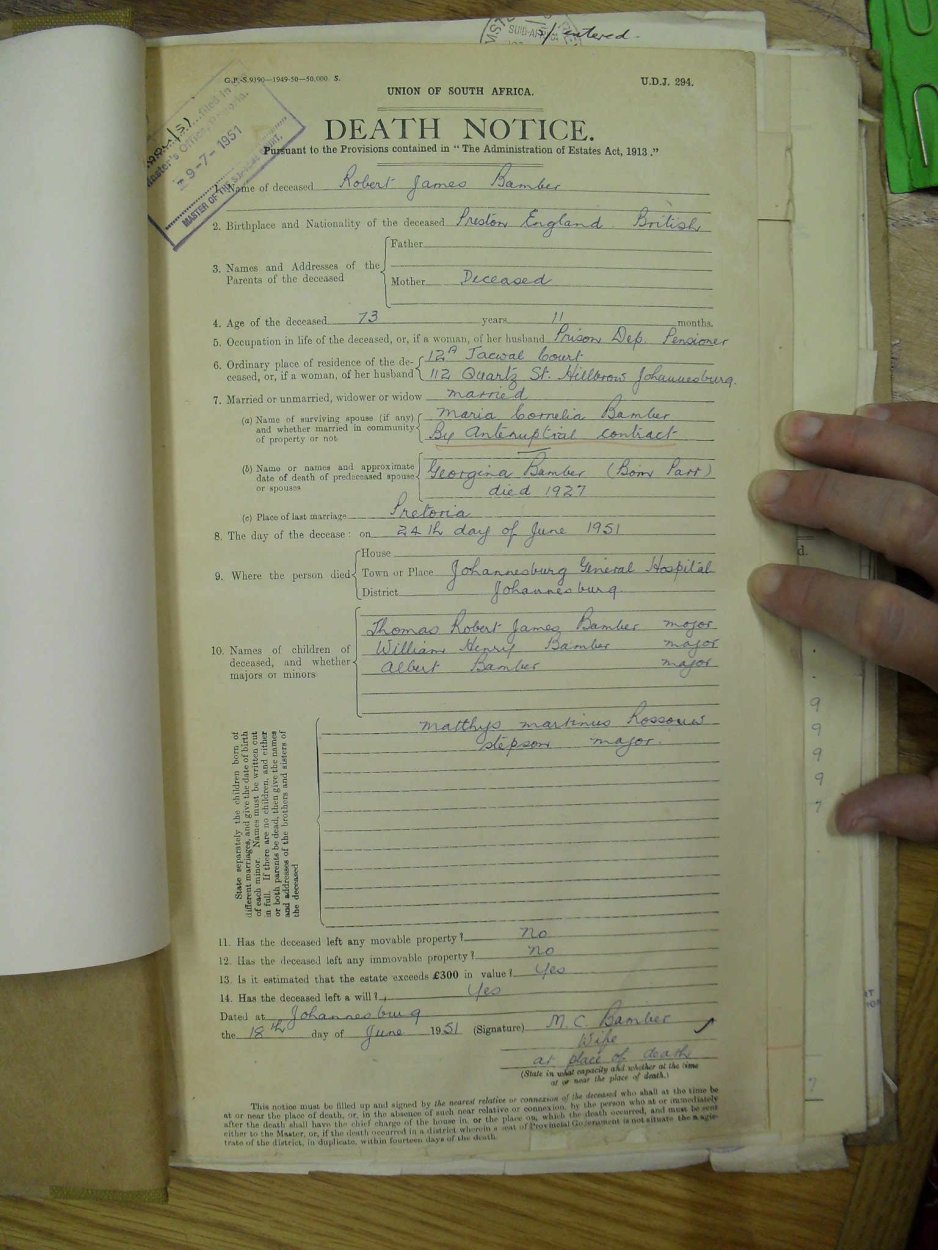 entered.
SUID-AFR
G.P.-S.9390—1949-50—50,000. S.
U.D.J. 294.
UNION OF SOUTH AFRICA.
DEATH NOTICE.
Pursuant to the Provisions contained in "The Administration of Estates Act, 1913."
filed in
Master's Office,
-9-7-1951
MASTER OF THE SUPREME COURT.
Name of deceased Robert James Bamber
2. Birthplace and Nationality of the deceased Preston England. British
Father
3. Names and Addresses of the
Parents of the deceased
Mother Deceased
4. Age of the deceased 73 years 11 months.
5. Occupation in life of the deceased, or, if a woman, of her husband Prison Dep. Pensioner
6. Ordinary place of residence of the de- 12A Jacwal Court
ceased, or, if a woman, of her husband 112 Quartz St. Hillbrow Johannesburg.
7. Married or unmarried, widower or widow married
(a) Name of surviving spouse (if any) Maria Cornelia Bamber
and whether married in community
of property or not By Antenuptial contract
(b) Name or names and approximate
date of death of predeceased spouse Georgina Bamber (Born Parr)
or spouses died 1927
(c) Place of last marriage Pretoria
8. The day of the decease: on 24th day of June 1951
House
9. Where the person died Town or Place Johannesburg General Hospital
District Johannesburg
Thomas Robert James Bamber major
10. Names of children of William Henry Bamber major
deceased, and whether Albert Bamber major
majors or minors
Matthys Martinus Rossouw
stepson major.
State separately the children born of
different marriages, and give the date of birth
of each minor. Names must be written out
in full. If there are no children, and either
or both parents be dead, then give the names
and addresses of the brothers and sisters of
the deceased
11. Has the deceased left any movable property? No
12. Has the deceased left any immovable property? No
13. Is it estimated that the estate exceeds £300 in value? Yes
14. Has the deceased left a will? Yes
Dated at Johannesburg
the 18th day of June 1951 (Signature) M. C. Bamber
Wife
at place of death
(State in what capacity and whether at the time
at or near the place of death.)
This notice must be filled up and signed by the nearest relative or connexion of the deceased who shall at the time be
at or near the place of death, or, in the absence of such near relative or connexion, by the person who at or immediately
after the death shall have the chief charge of the house in, or the place on, which the death occurred, and must be sent
either to the Master, or, if the death occurred in a district wherein a seat of Provincial Government is not situate the magis-
trate of the district, in duplicate, within fourteen days of the death.
d.
9
9
9
9
7
?